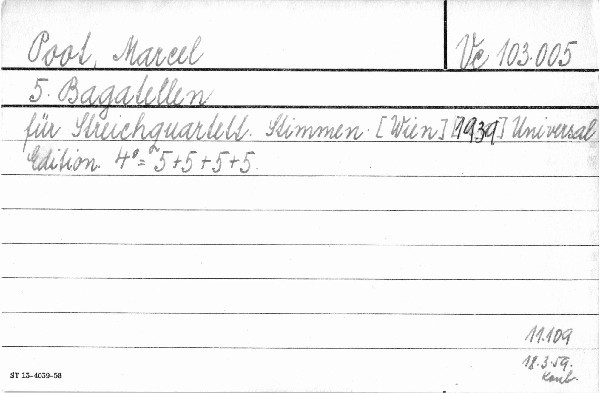 Poot, Marcel
Vc 103.005
5. Bagatellen
für Streichquartett. Stimmen. [Wien] [1939] Universal
Edition. 4°= 5+5+5+5.
11.109
18.3.59.
ST 13-4059-58